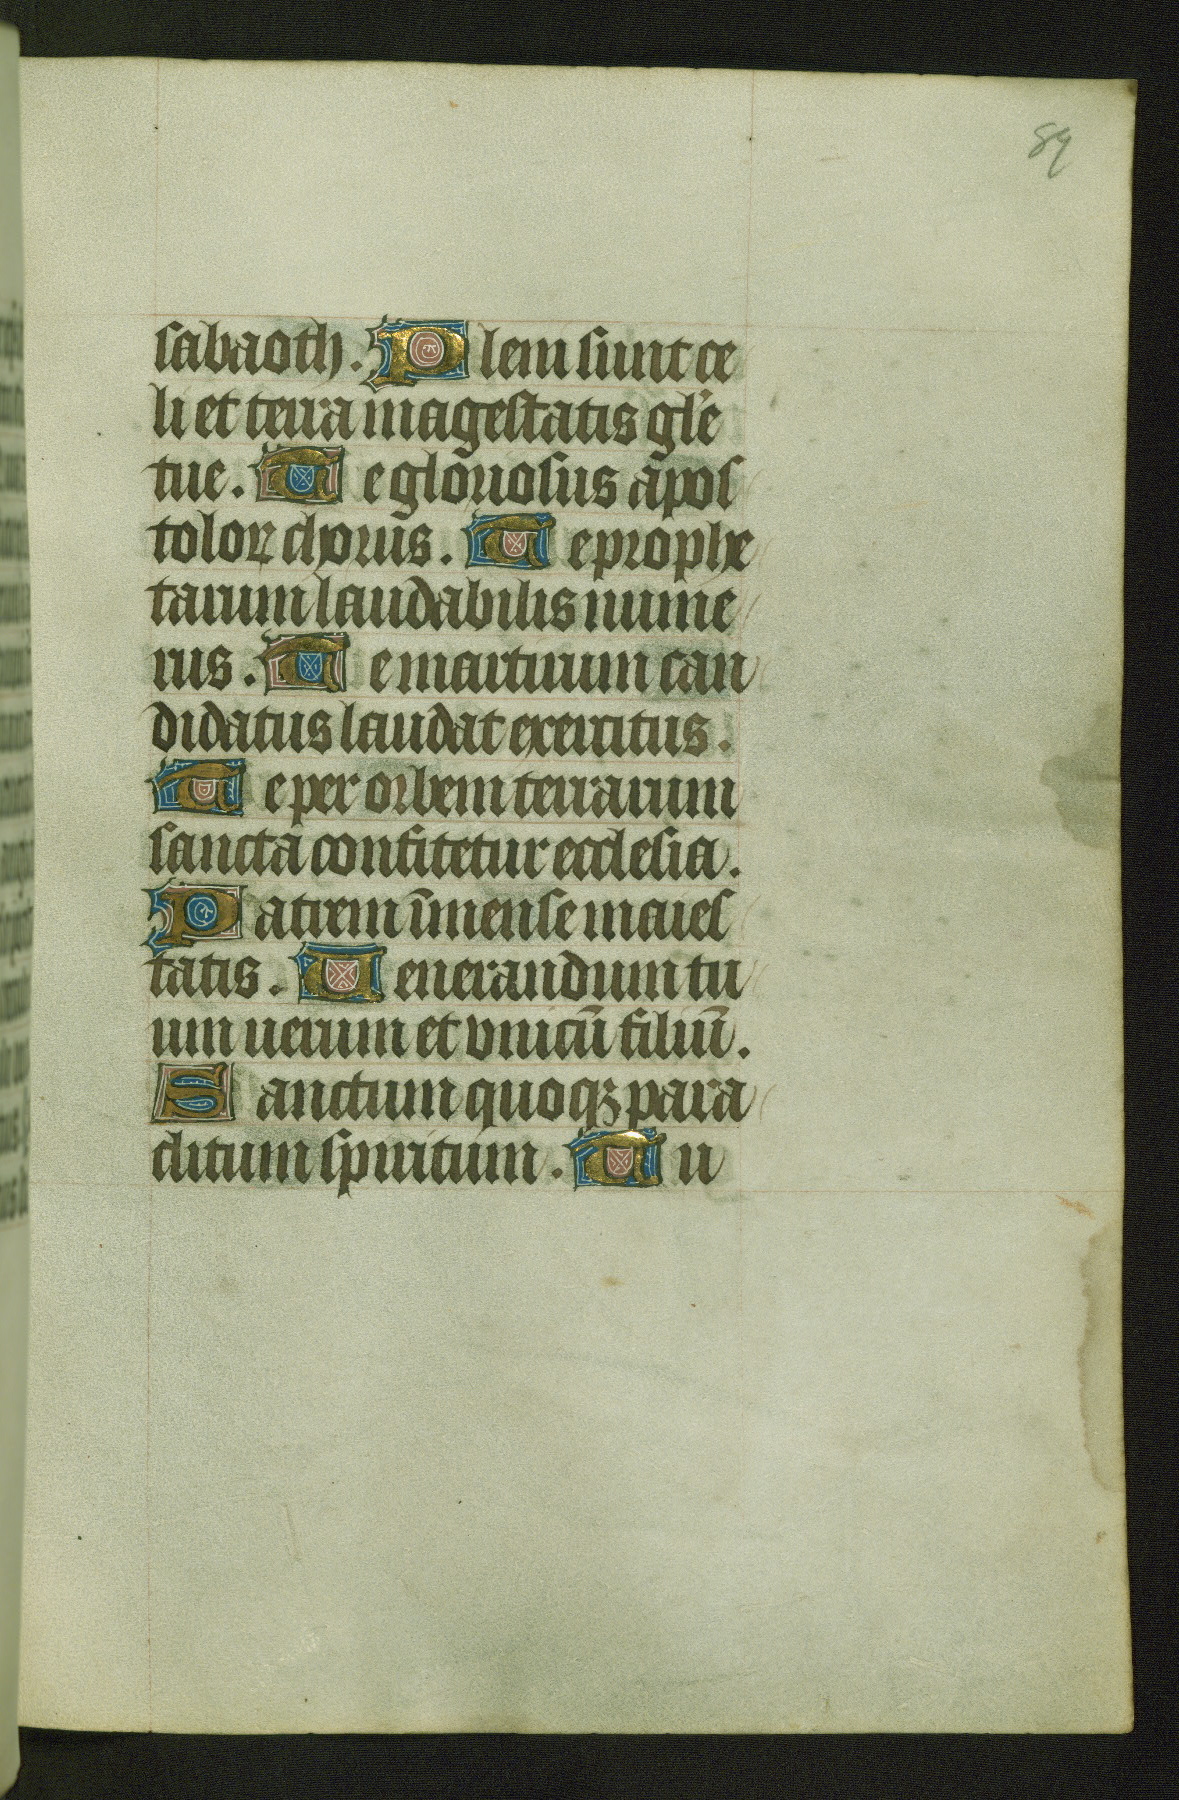 89
sabaoth. Pleni sunt ce
li et terra magestatis gl'e
tue. Te gloriosus apos
toloꝝ chorus. Te prophe
tarum laudabilis nume
rus. Te martirum can
didatus laudat exercitus.
Te per orbem terrarum
sancta confitetur ecclesia.
Patrem īmense maies
tatis. Venerandum tu
um uerum et vnicū filiū.
Sanctum quoqꝫ para
clitum spiritum. Tu